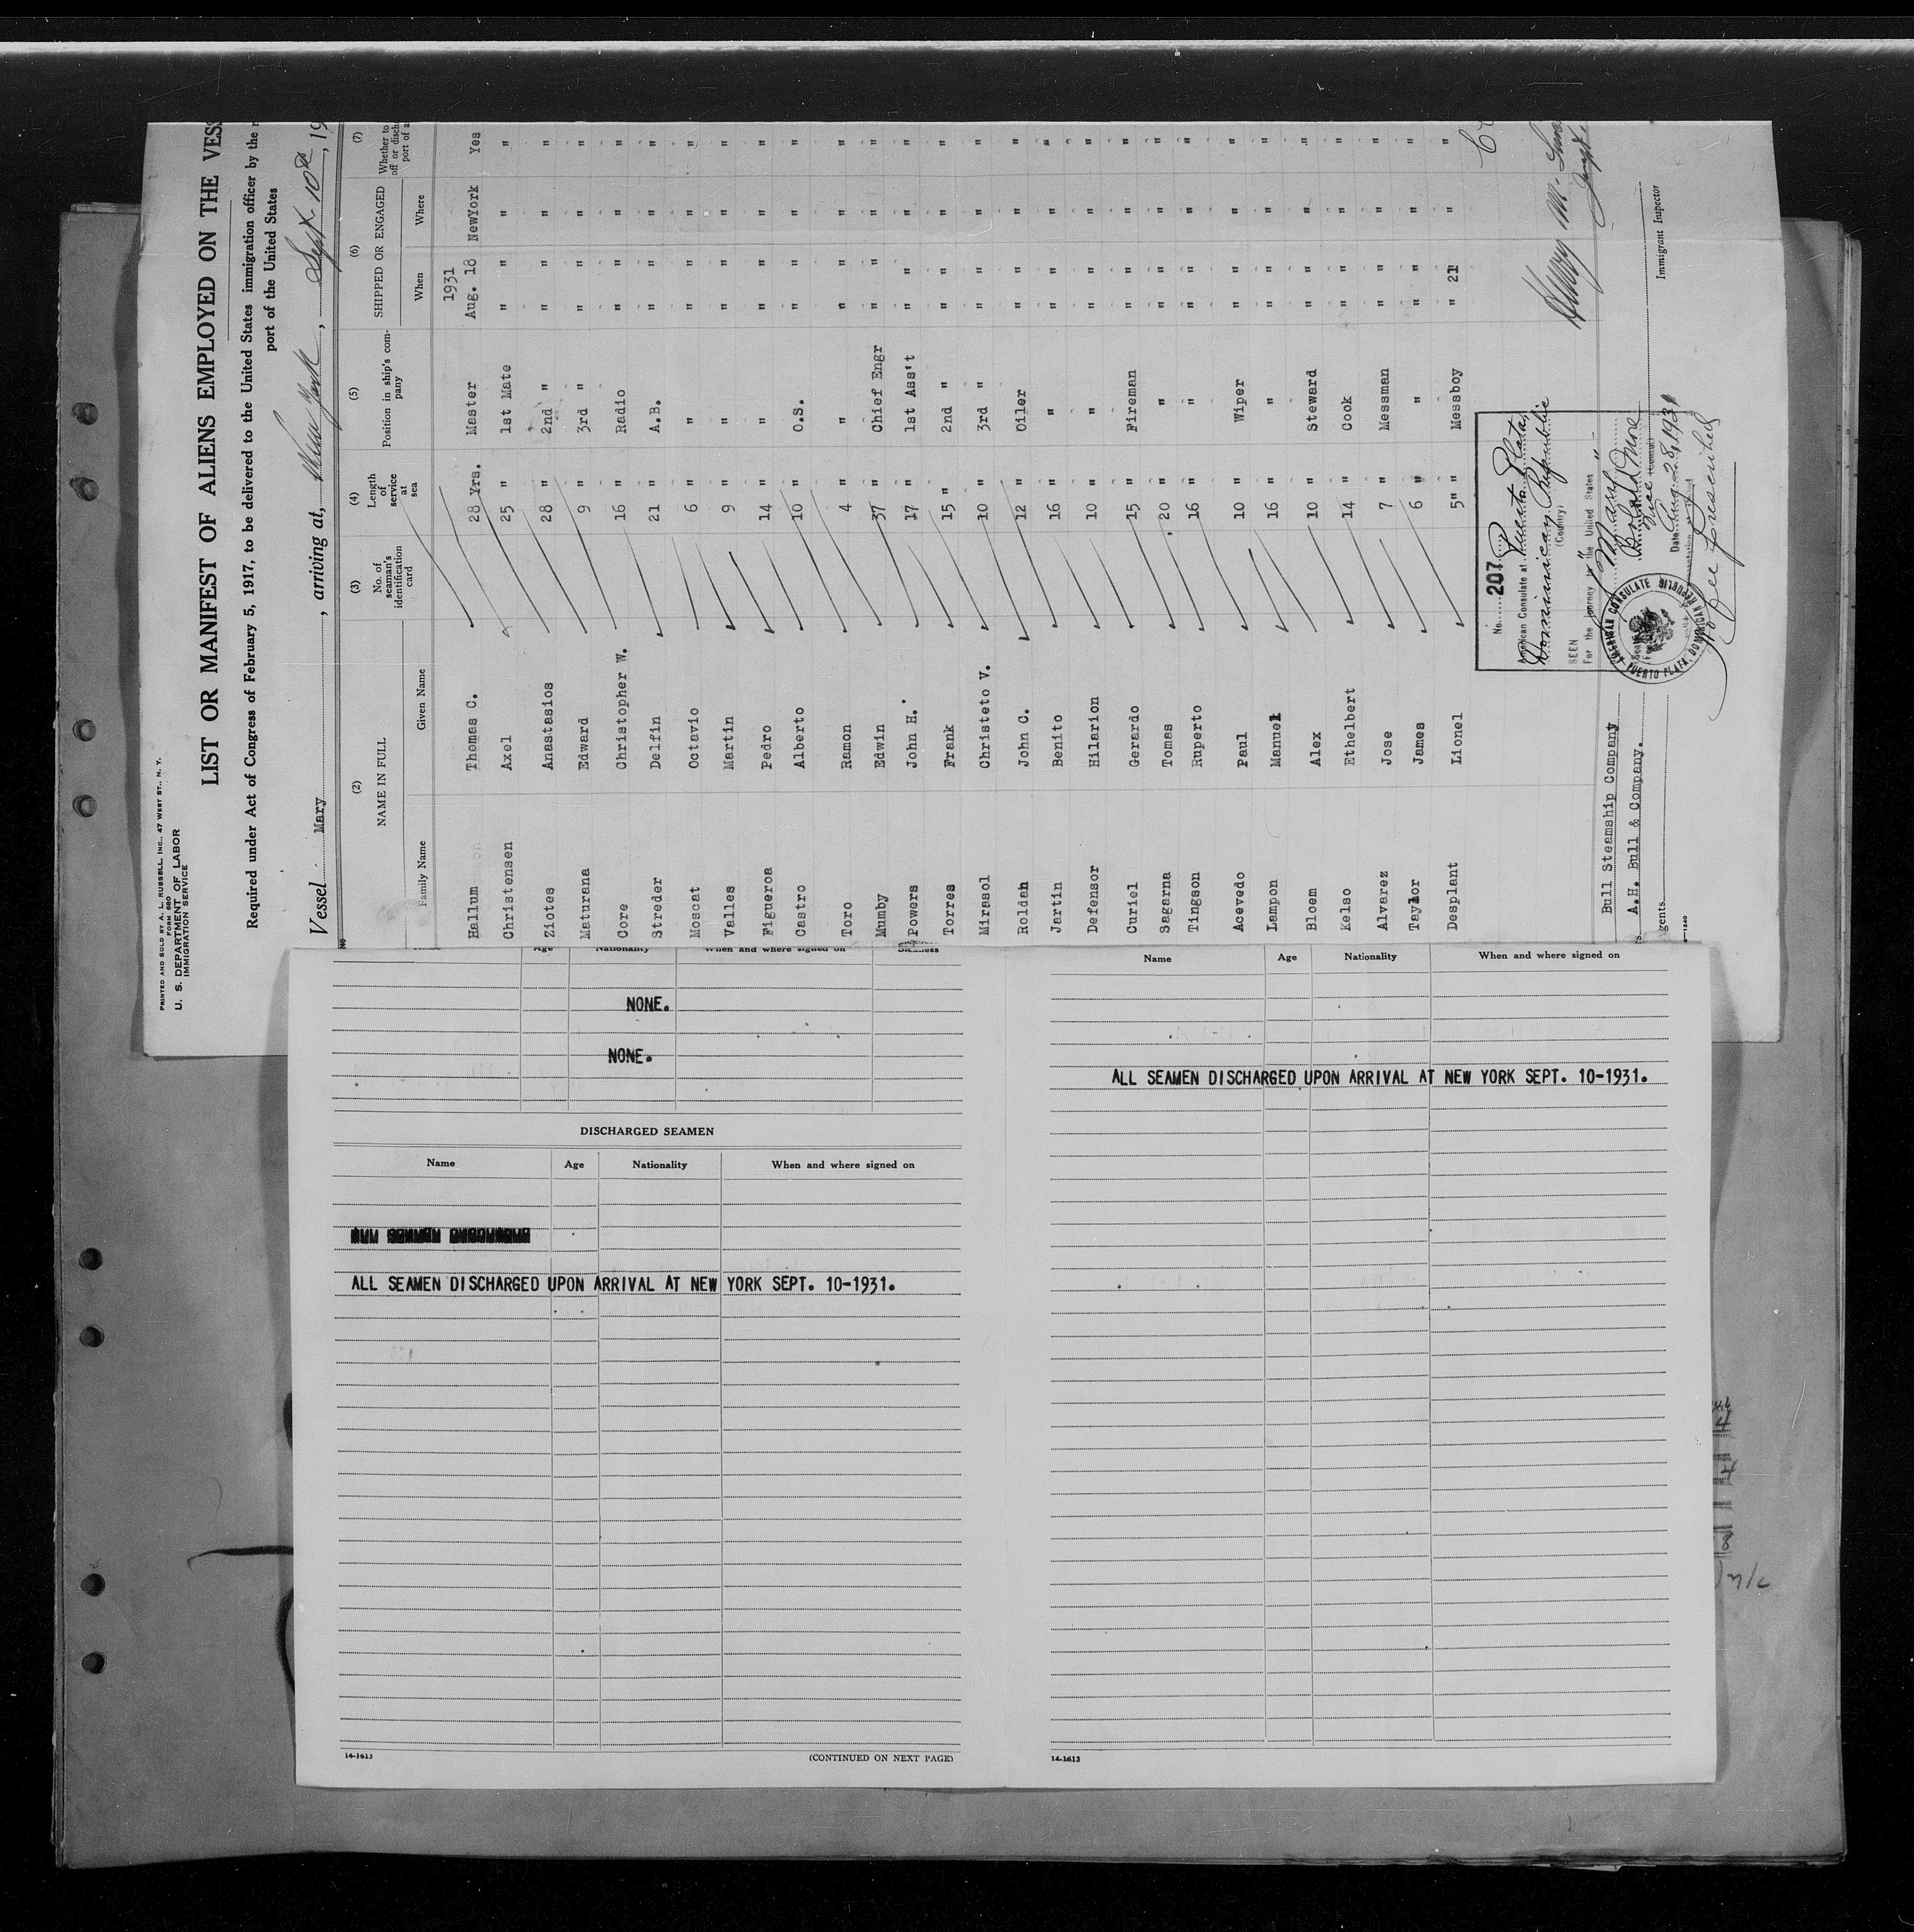 PRINTED AND SOLD BY A. L. RUSSELL, INC., 47 WEST ST., N. Y.
FORM 680
U. S. DEPARTMENT OF LABOR
IMMIGRATION SERVICE
LIST OR MANIFEST OF ALIENS EMPLOYED ON THE VESS
Required under Act of Congress of February 5, 1917, to be delivered to the United States immigration officer by the
port of the United States
Vessel Mary, arriving at, New York, Sept. 10th, 19
(2) (3) (4) (5) (6) (7)
NAME IN FULL
Family Name Given Name
No. of seaman's identification card
Length of service at sea
Position in ship's company
SHIPPED OR ENGAGED
When Where
Whether to
off or disch
port of a
1931
Hallum Thomas C. 28 Yrs. Master Aug. 18 NewYork Yes
Christensen Axel 25 " 1st Mate " " " "
Ziotes Anastasios 28 " 2nd " " " " "
Maturana Edward 9 " 3rd " " " " "
Core Christopher W. 16 " Radio " " " "
Streder Delfin 21 " A.B. " " " "
Moscat Octavio 6 " " " " " "
Valles Martin 9 " " " " " "
Figueroa Pedro 14 " " " " " "
Castro Alberto 10 " O.S. " " " "
Toro Ramon 4 " " " " " "
Mumby Edwin 37 " Chief Engr " " " "
Powers John H. 17 " 1st Ass't " " " "
Torres Frank 15 " 2nd " " " " "
Mirasol Christeto V. 10 " 3rd " " " " "
Roldan John C. 12 " Oiler " " " "
Jartin Benito 16 " " " " " "
Defensor Hilarion 10 " " " " " "
Curiel Gerardo 15 " Fireman " " " "
Sagarna Tomas 20 " " " " " "
Tingson Ruperto 16 " " " " " "
Acevedo Paul 10 " Wiper " " " "
Lampon Manuel 16 " " " " " "
Bloem Alex 10 " Steward " " " "
Kelso Ethelbert 14 " Cook " " " "
Alvarez Jose 7 " Messman " " " "
Taylor James 6 " " " " " "
Desplant Lionel 5 " " Messboy " 21 " "
No. 207
American Consulate at Puerto Plata,
Dominican Republic
(Country)
SEEN
For the journey to the United States
"Mary"
Vice Consul
Date Aug 28, 1931
No fee prescribed
AMERICAN CONSULATE
PUERTO PLATA, DOMINICAN REPUBLIC
Immigrant Inspector
Bull Steamship Company
A.H. Bull & Company.
gents
Age Nationality When and where signed on Sickness
NONE.
NONE.
DISCHARGED SEAMEN
Name Age Nationality When and where signed on
ALL SEAMEN DISCHARGED UPON ARRIVAL AT NEW YORK SEPT. 10-1931.
14-1613 (CONTINUED ON NEXT PAGE)
Name Age Nationality When and where signed on
ALL SEAMEN DISCHARGED UPON ARRIVAL AT NEW YORK SEPT. 10-1931.
14-1613